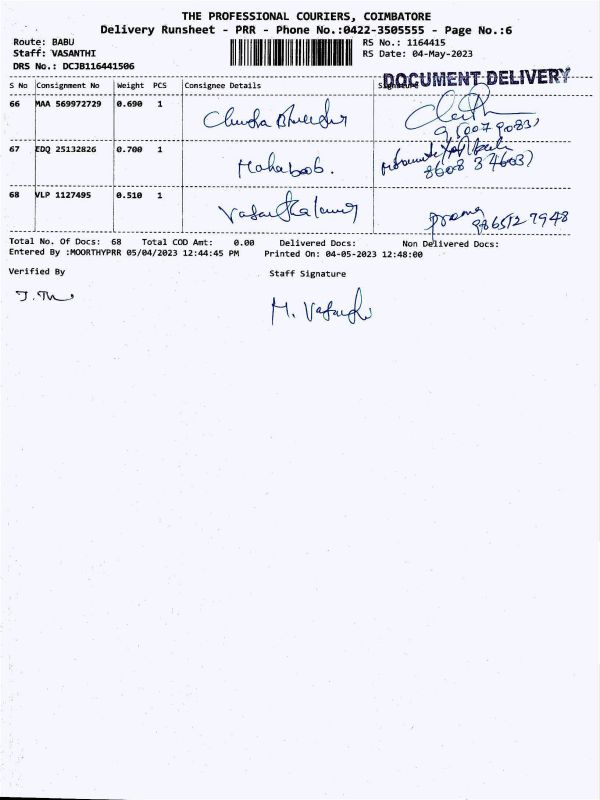 THE PROFESSIONAL COURIERS, COIMBATORE
Delivery Runsheet - PRR - Phone No.:0422-3505555 - Page No.:6
Route: BABU RS No.: 1164415
Staff: VASANTHI RS Date: 04-May-2023
DRS No.: DCJB116441506
DOCUMENT DELIVERY
S No Consignment No Weight PCS Consignee Details Signature
66 MAA 569972729 0.690 1
67 EDQ 25132826 0.700 1 Mahaboob.
68 VLP 1127495 0.510 1
986512 7948
Total No. Of Docs: 68 Total COD Amt: 0.00 Delivered Docs: Non Delivered Docs:
Entered By :MOORTHYPRR 05/04/2023 12:44:45 PM Printed On: 04-05-2023 12:48:00
Verified By Staff Signature
M. Vasanthi